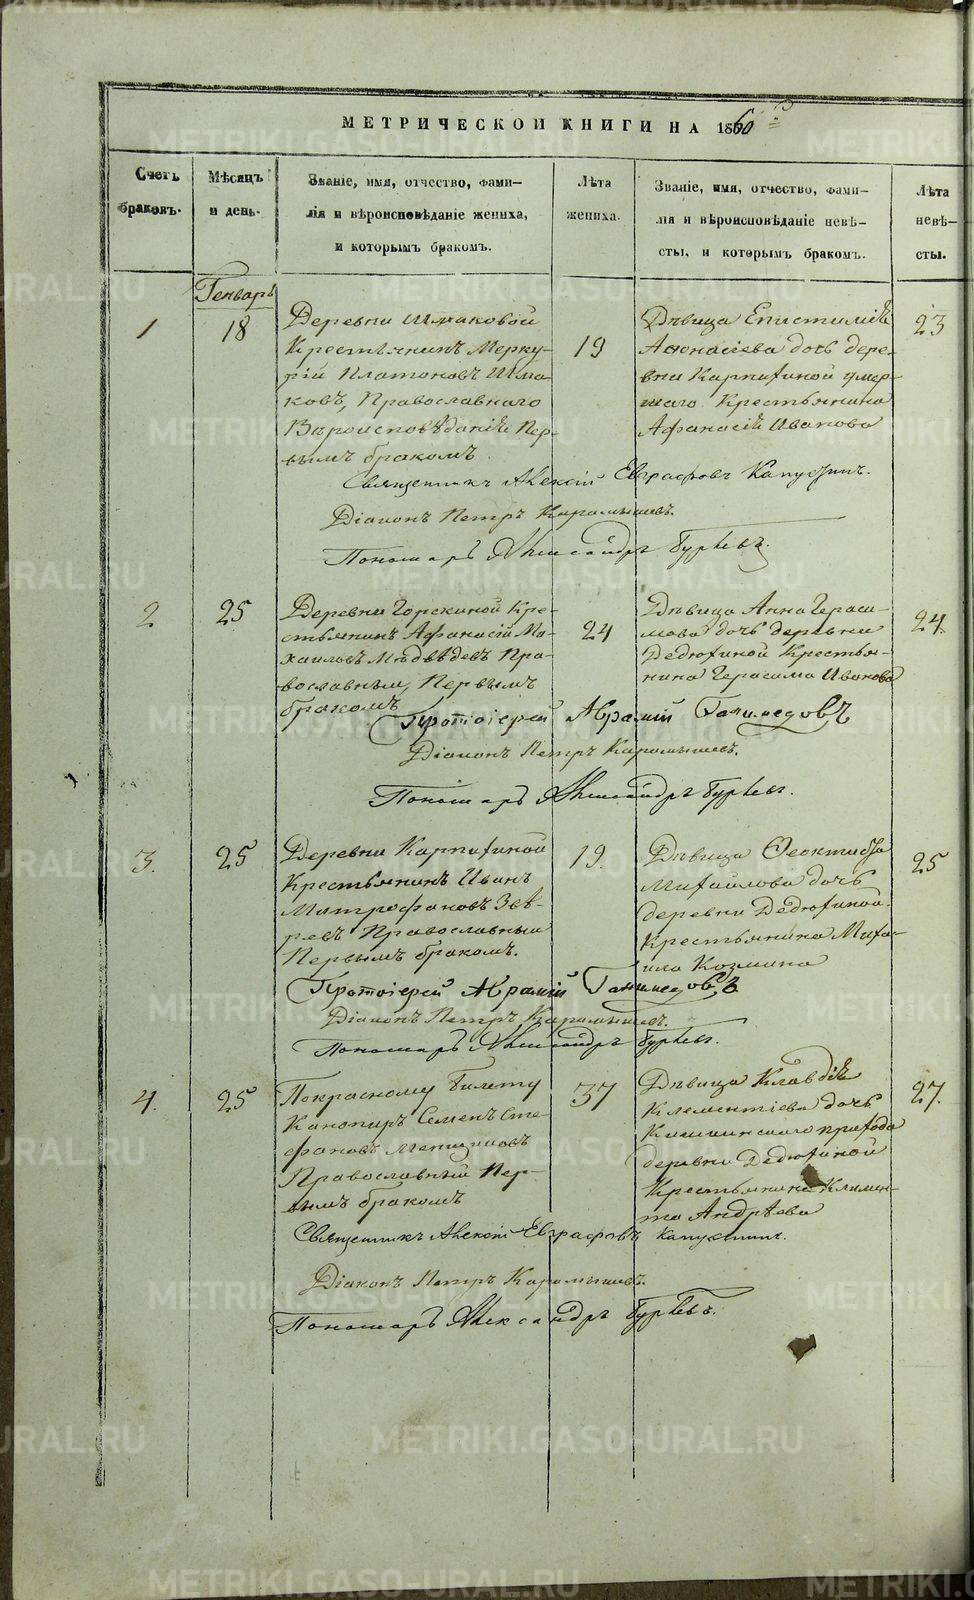 МЕТРИЧЕСКОЙ КНИГИ НА 1860
Счетъ браковъ.
Мѣсяцъ и день.
Званіе, имя, отчество, фами-
лія и вѣроисповѣданіе жениха,
и которымъ бракомъ.
Лѣта жениха.
Званіе, имя, отчество, фами-
лія и вѣроисповѣданіе невѣ-
сты, и которымъ бракомъ.
Лѣта невѣ-
сты.
Генварь
1
18
Деревни Шмаковой
Крестьянинъ Мерку-
рій Платоновъ Шма-
ковъ, Православнаго
Вѣроисповѣданія Пер-
вымъ бракомъ
19
Дѣвица Епистимія
Афонасіева дочь дере-
вни Карпихиной умер-
шаго Крестьянина
Афанасія Иванова
23
Священникъ Алексій Евграфовъ Капустинъ.
Діаконъ Петръ Карамышевъ.
Пономарь Александръ Бурѣвъ.
2
25
Деревни Горскиной Кре-
стьянинъ Афанасій Ми-
хаиловъ Медвѣдевъ Пра-
вославный, Первымъ
бракомъ
24
Дѣвица Анна Гераси-
мова дочь деревни
Дедюхиной Крестья-
нина Герасима Иванова
24.
Протоіерей Аврамій Ганимедовъ
Діаконъ Петръ Карамышевъ.
Пономарь Александръ Бурѣвъ.
3.
25
Деревни Карпихиной
Крестьянинъ Иванъ
Митрофановъ Звѣ-
ревъ Православный
Первымъ бракомъ.
19.
Дѣвица Ѳеоктиста
Михайлова дочь
деревни Дедюхиной
Крестьянина Миха-
ила Козмина
25
Протоіерей Аврамій Ганимедовъ
Діаконъ Петръ Карамышевъ.
Пономарь Александръ Бурѣвъ.
4.
25
Покрасному билету
Канониръ Семенъ Сте-
фановъ
Православный Пер-
вымъ бракомъ
37
Дѣвица Клавдія
Клементіева дочь
прихода
деревни Дедюхиной
Крестьянина Климен-
та Андрѣева
27.
Священникъ Алексій Евграфовъ Капустинъ.
Діаконъ Петръ Карамышевъ.
Пономарь Александръ Бурѣвъ.
METRIKI.GASO-URAL.RU